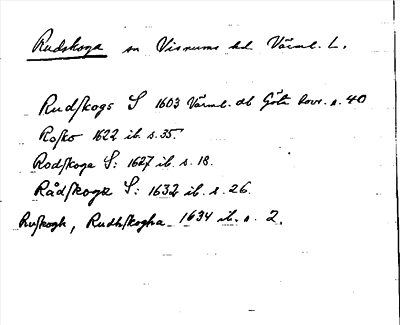 Rudskoga sn Visnums hd Värml. L.
Rudskogs S 1603 Värml. db Göta hovr. s. 40
Rosko 1622 ib. s. 35.
Rodskoga S: 1627 ib. s. 18.
Rådskoga S: 1632 ib. s. 26.
Ruskogh, Rudhskogha 1634 ib. s. 2.